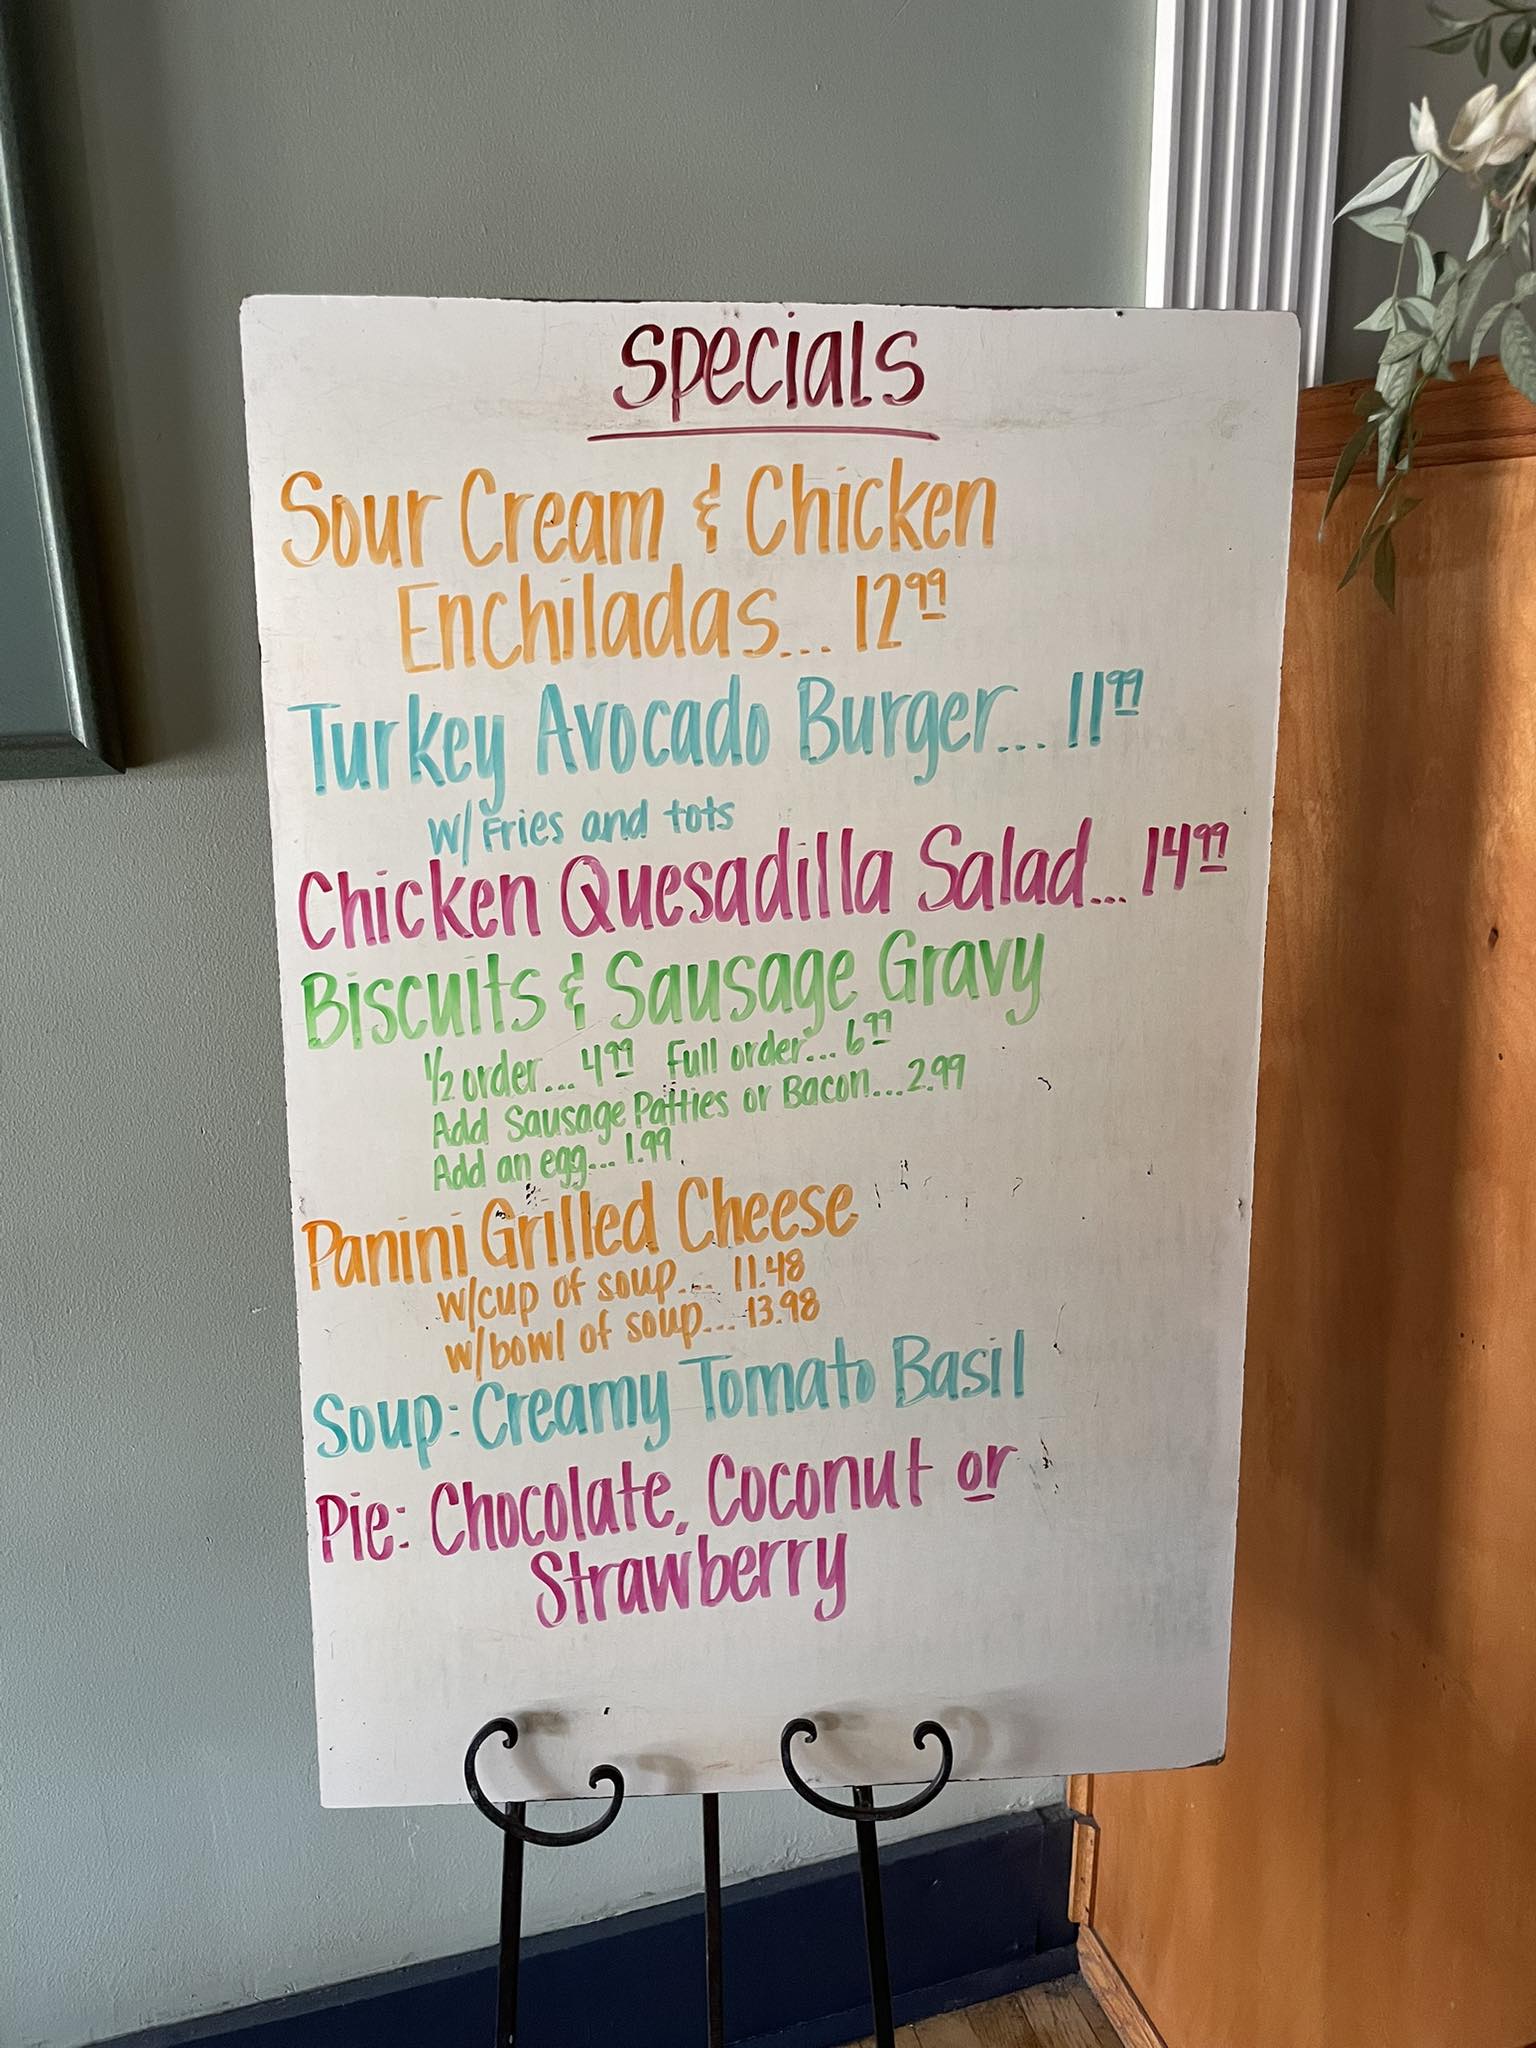 Specials
Sour Cream & Chicken
Enchiladas... 12.99
Turkey Avocado Burger... 11.99
w/ Fries and tots
Chicken Quesadilla Salad... 14.99
Biscuits & Sausage Gravy
1/2 order... 4.99 Full order... 6.99
Add Sausage Patties or Bacon...2.99
Add an egg... 1.99
Panini Grilled Cheese
w/cup of soup... 11.48
w/bowl of soup... 13.98
Soup: Creamy Tomato Basil
Pie: Chocolate, Coconut or
Strawberry